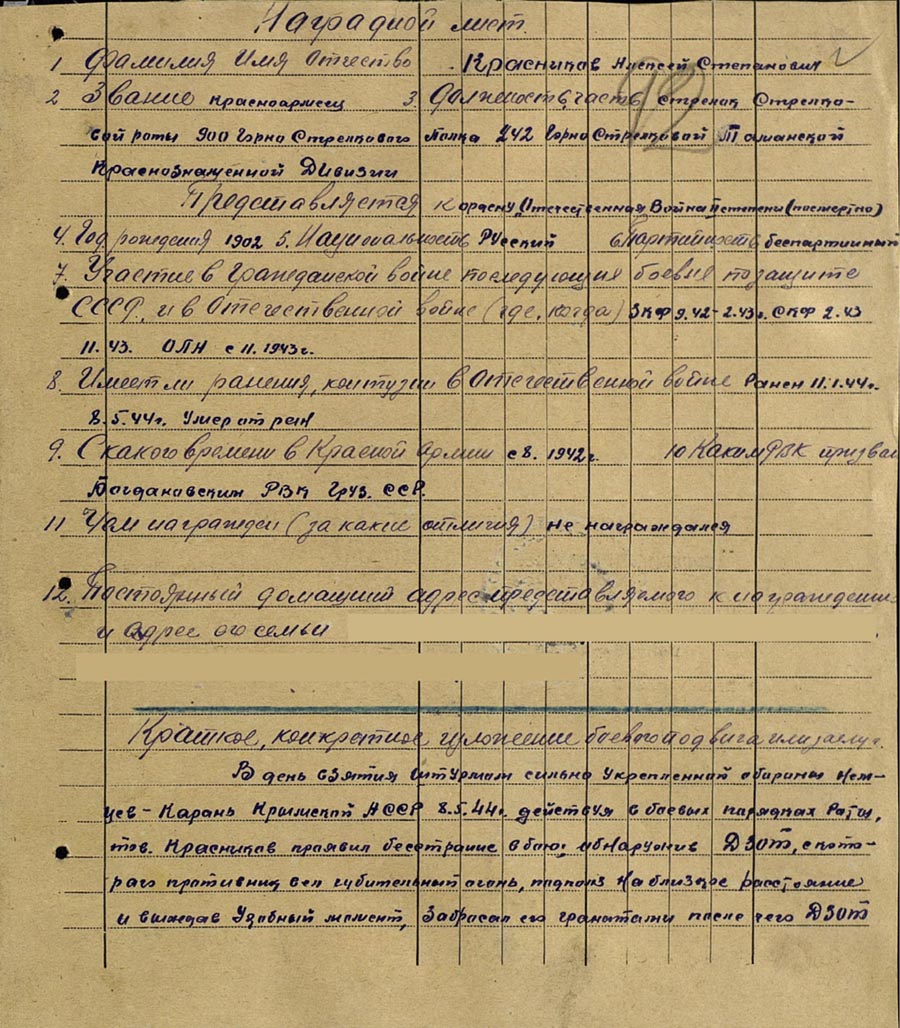 Наградной лист.
1 Фамилия Имя Отчество Красников Алексей Степанович
2 Звание красноармеец 3. Должность, часть стрелок Стрелко-
вой роты 900 Горно Стрелкового Полка 242 Горно Стрелковой Таманской
Краснознаменной Дивизии
Представляется к ордену Отечественная Война II степени (посмертно)
4. Год рождения 1902 5. Национальность Русский 6 Партийность беспартийный
7. Участие в Гражданской войне последующия боевыя по защите
СССР, и в Отечественной войне (где, когда) ЗКФ 9.42-2.43г. СКФ 2.43
11.43. ОПА с 11.1943г.
8. Имеет ли ранения, контузии в Отечественной войне Ранен 11.1.44г.
8.5.44г. Умер от ран
9. С какого времени в Красной армии с 8. 1942г. 10 Каким РВК призван
Богдановским РВК Груз. ССР.
11 Чем награжден (за какие отличия) не награждался
12. Постоянный домашний адрес представляемого к награждению
и адрес его семьи
Краткое, конкретное изложение боевого подвига или заслуг.
В день взятия штурмом сильно укрепленной обороны Нем-
цев - Карань Крымской АССР 8.5.44г. действуя в боевых порядках Роты,
тов. Красников проявил бесстрашие в бою; обнаружив ДЗОТ, с кото-
рого противник вел губительный огонь, подполз на близкое расстояние
и выждав Удобный момент, Забросал его гранатами после чего ДЗОТ